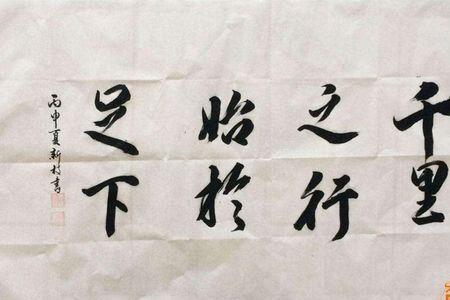 千里
之行
始於
足下
丙申夏新村書